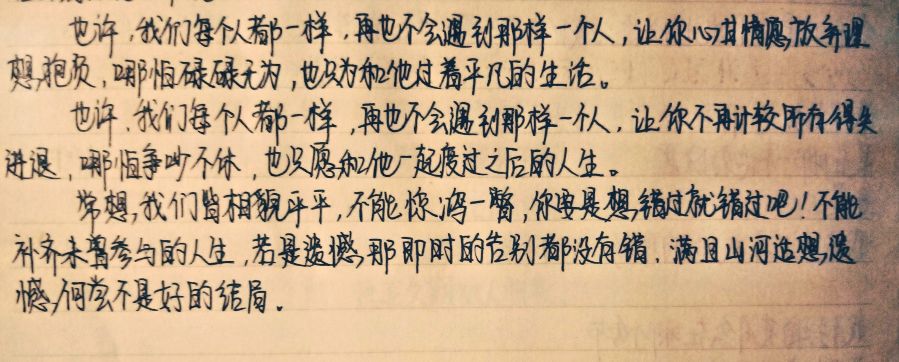 也许，我们每个人都一样，再也不会遇到那样一个人，让你心甘情愿放弃理
想，抱负，哪怕碌碌无为，也只为和他过着平凡的生活。
也许，我们每个人都一样，再也不会遇到那样一个人，让你不再计较所有得失
进退，哪怕争吵不休，也只愿和他一起度过之后的人生。
常想，我们皆相貌平平，不能惊鸿一瞥，你要是想错过就错过吧！不能
补齐未曾参与的人生，若是遗憾，那即时的告别都没有错，满目山河远想，遗
憾，何尝不是好的结局。